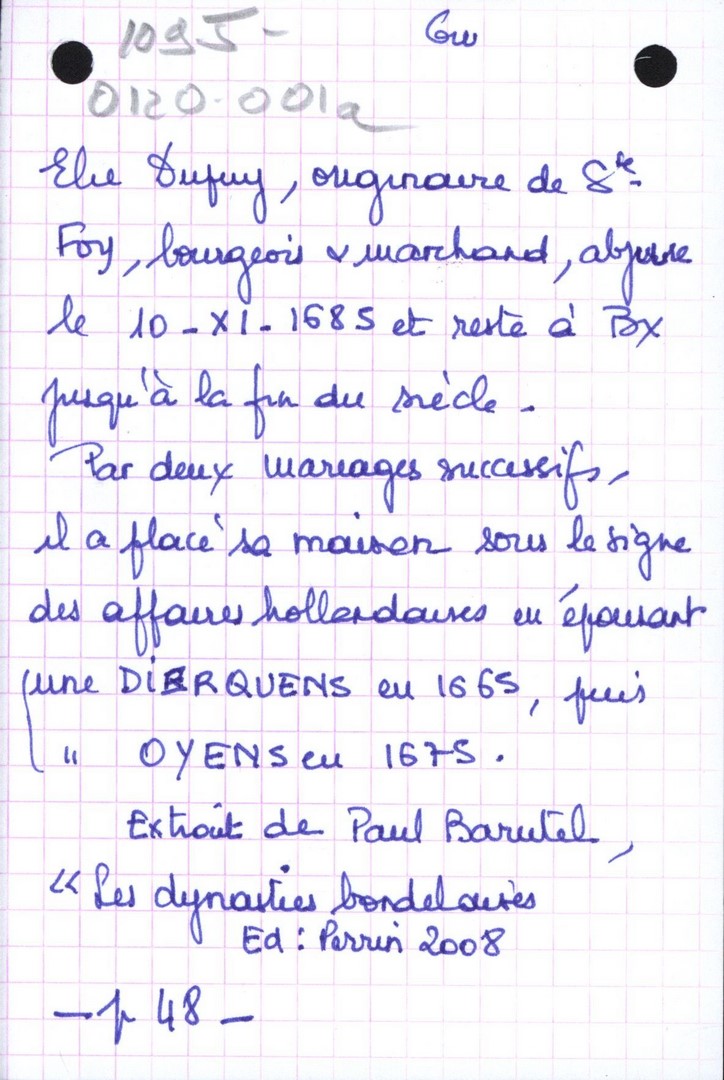 1095-
0120.001a
Elie Dupuy, originaire de Ste
Foy, bourgeois & marchand, abjure
le 10-XI-1685 et reste à Bx
jusqu'à la fin du siècle.
Par deux mariages successifs,
il a placé sa maison sous le signe
des affaires hollandaises en épousant
une DIERQUENS en 1665, puis
" OYENS en 1675.
Extrait de Paul Barutel,
« Les dynasties bordelaises
Ed : Perrin 2008
- p 48 -